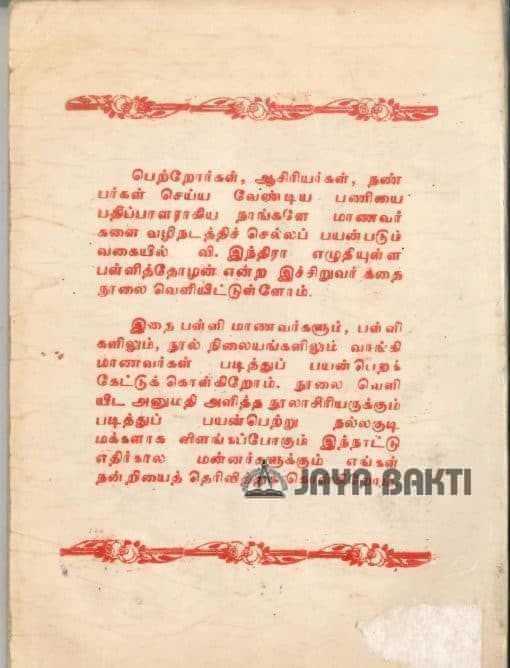 பெற்றோர்கள், ஆசிரியர்கள், நண்
பர்கள் செய்ய வேண்டிய பணியை
பதிப்பாளராகிய நாங்களே மாணவர்
களை வழிநடத்திச் செல்லப் பயன்படும்
வகையில் வி. இந்திரா எழுதியுள்ள
பள்ளித்தோழன் என்ற இச்சிறுவர் கதை
நூலை வெளியிட்டுள்ளோம்.
இதை பள்ளி மாணவர்களும், பள்ளி
களிலும், நூல் நிலையங்களிலும் வாங்கி
மாணவர்கள் படித்துப் பயன்பெறக்
கேட்டுக் கொள்கிறோம். நூலை வெளி
யிட அனுமதி அளித்த நூலாசிரியருக்கும்
படித்துப் பயன்பெற்று நல்லகுடி
மக்களாக விளங்கப்போகும் இந்நாட்டு
எதிர்கால மன்னர்களுக்கும் எங்கள்
நன்றியைத்
JAYA BAKTI